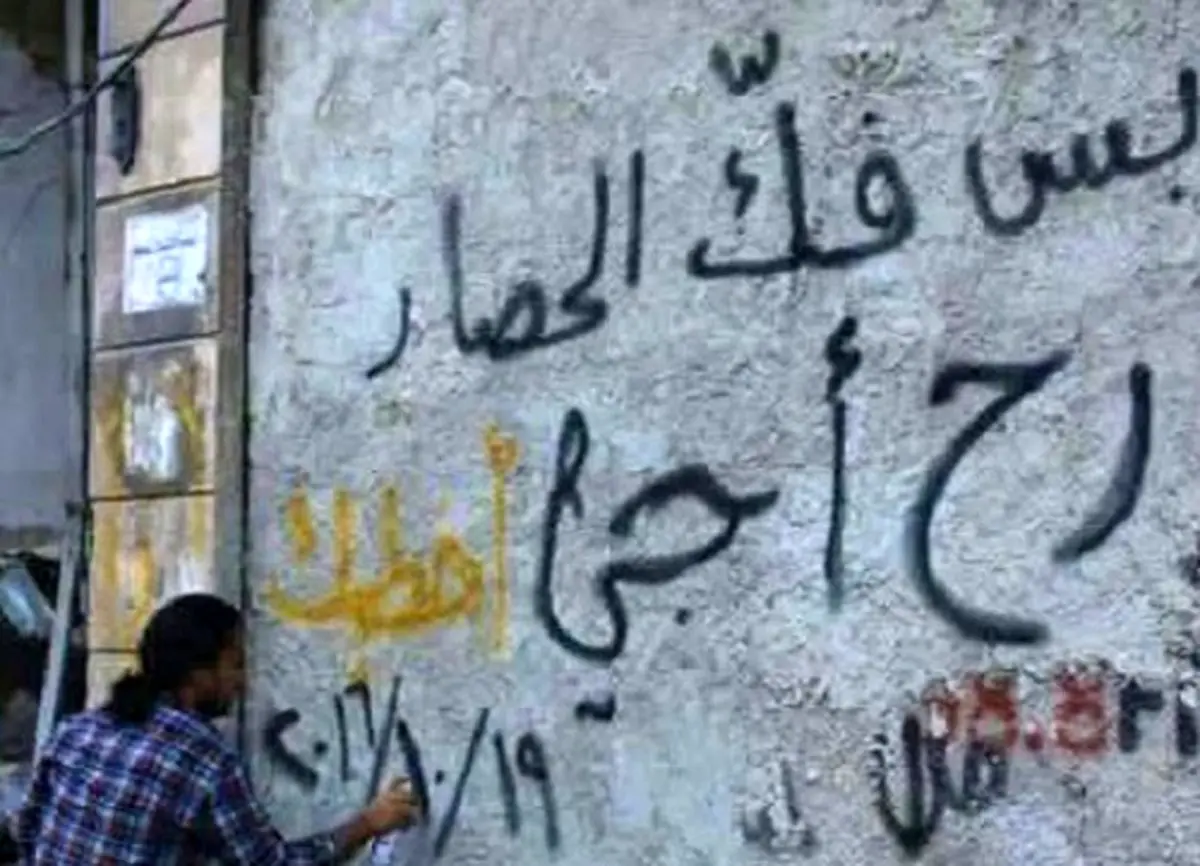 بس فكّ الحصار
رح أجي أخطبك
٢٠١٦/١٠/١٩